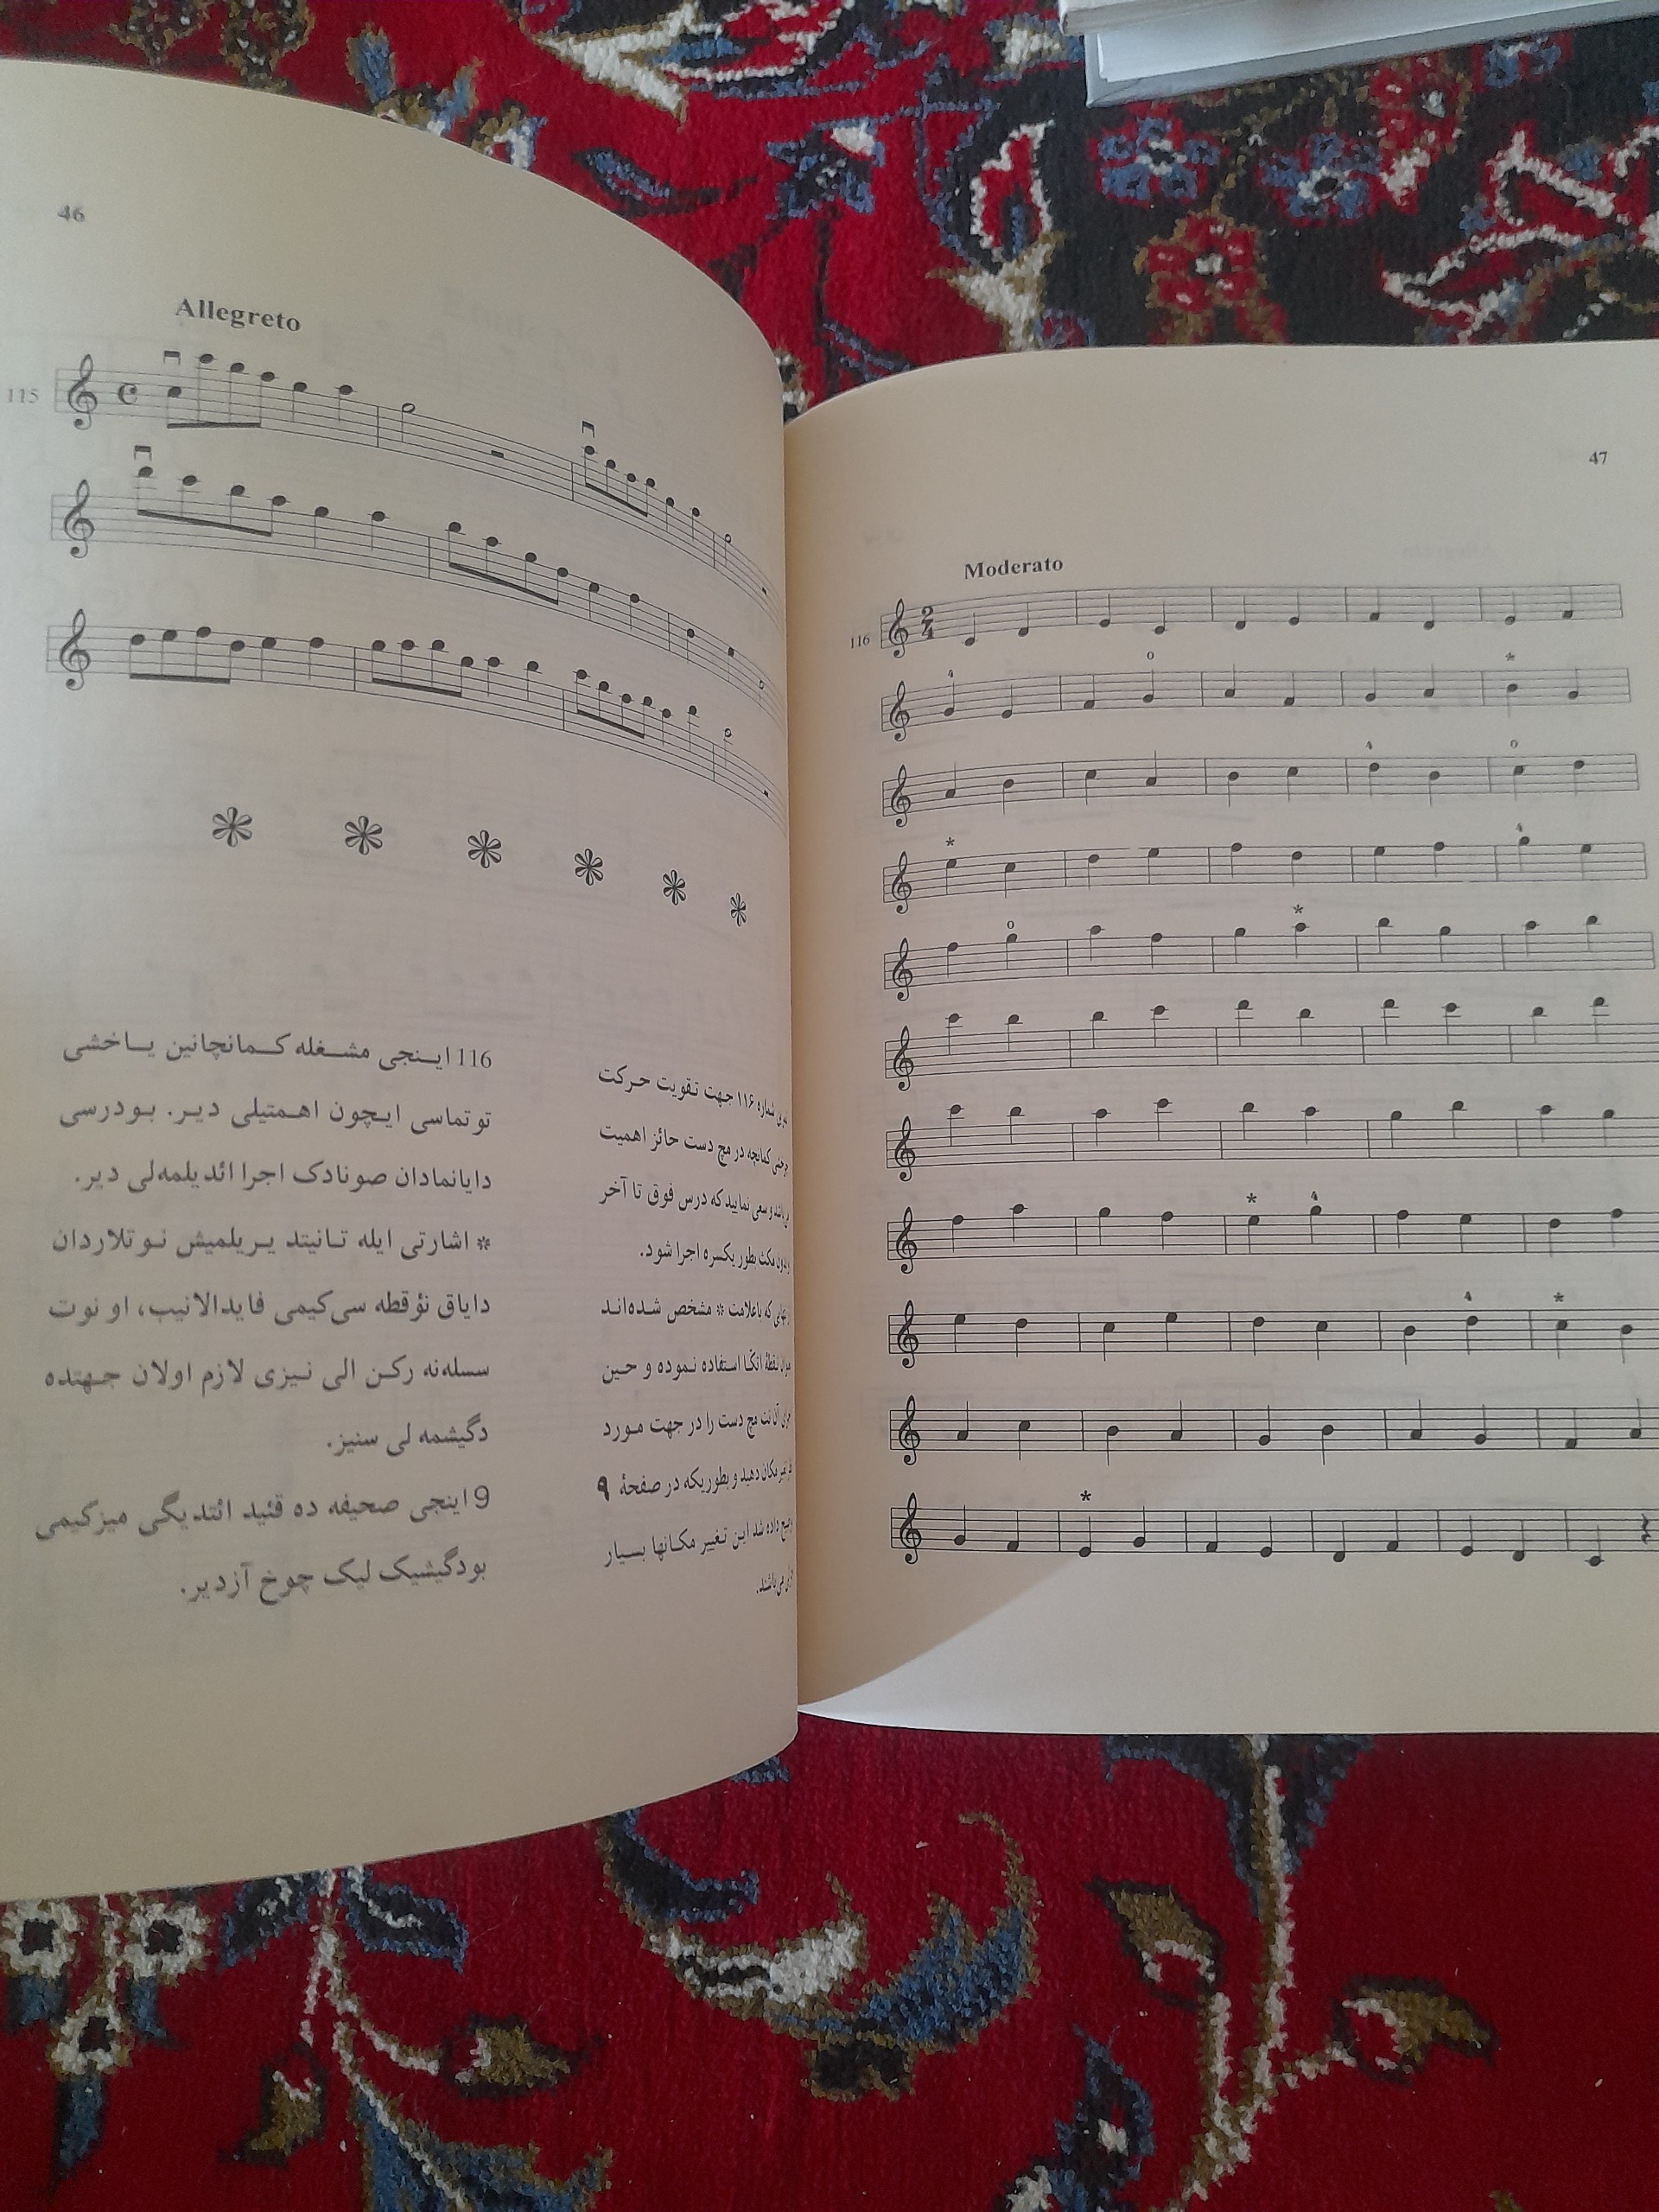 46
Allegreto
115
116 اینجی مشغله کمانچانین یاخشی
توتماسی ایچون اهمتیلی دیر. بودرسی
دایانمادان صونادک اجرا ائدیلمه‌لی دیر.
* اشارتی ایله تانیتد یریلمیش نوتلاردان
دایاق نؤقطه سی‌کیمی فایدالانیب، او نوت
سسله‌نه رکن الی نیزی لازم اولان جهتده
دگیشمه لی سنیز.
9 اینجی صحیفه ده قئید ائتدیگی میزکیمی
بودگیشیک لیک چوخ آزدیر.
شماره ۱۱۶ جهت تقویت حرکت
کمانچه در مچ دست حائز اهمیت
و سعی نمایید که درس فوق تا آخر
بدون مکث بطور یکسره اجرا شود.
که با علامت * مشخص شده‌اند
نقطهٔ اتکا استفاده نموده و حین
آن نت مچ دست را در جهت مورد
تغییر مکان دهید و بطوریکه در صفحهٔ ۹
داده شد این تغییر مکانها بسیار
می‌باشند.
47
Moderato
116
2
4
4 o *
4 o
* 4
o *
* 4
4 *
*